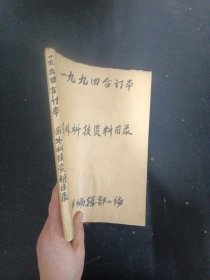 一九九四合订本
国外科技资料目录
编辑部
一九九四合订本
国外科技资料目录